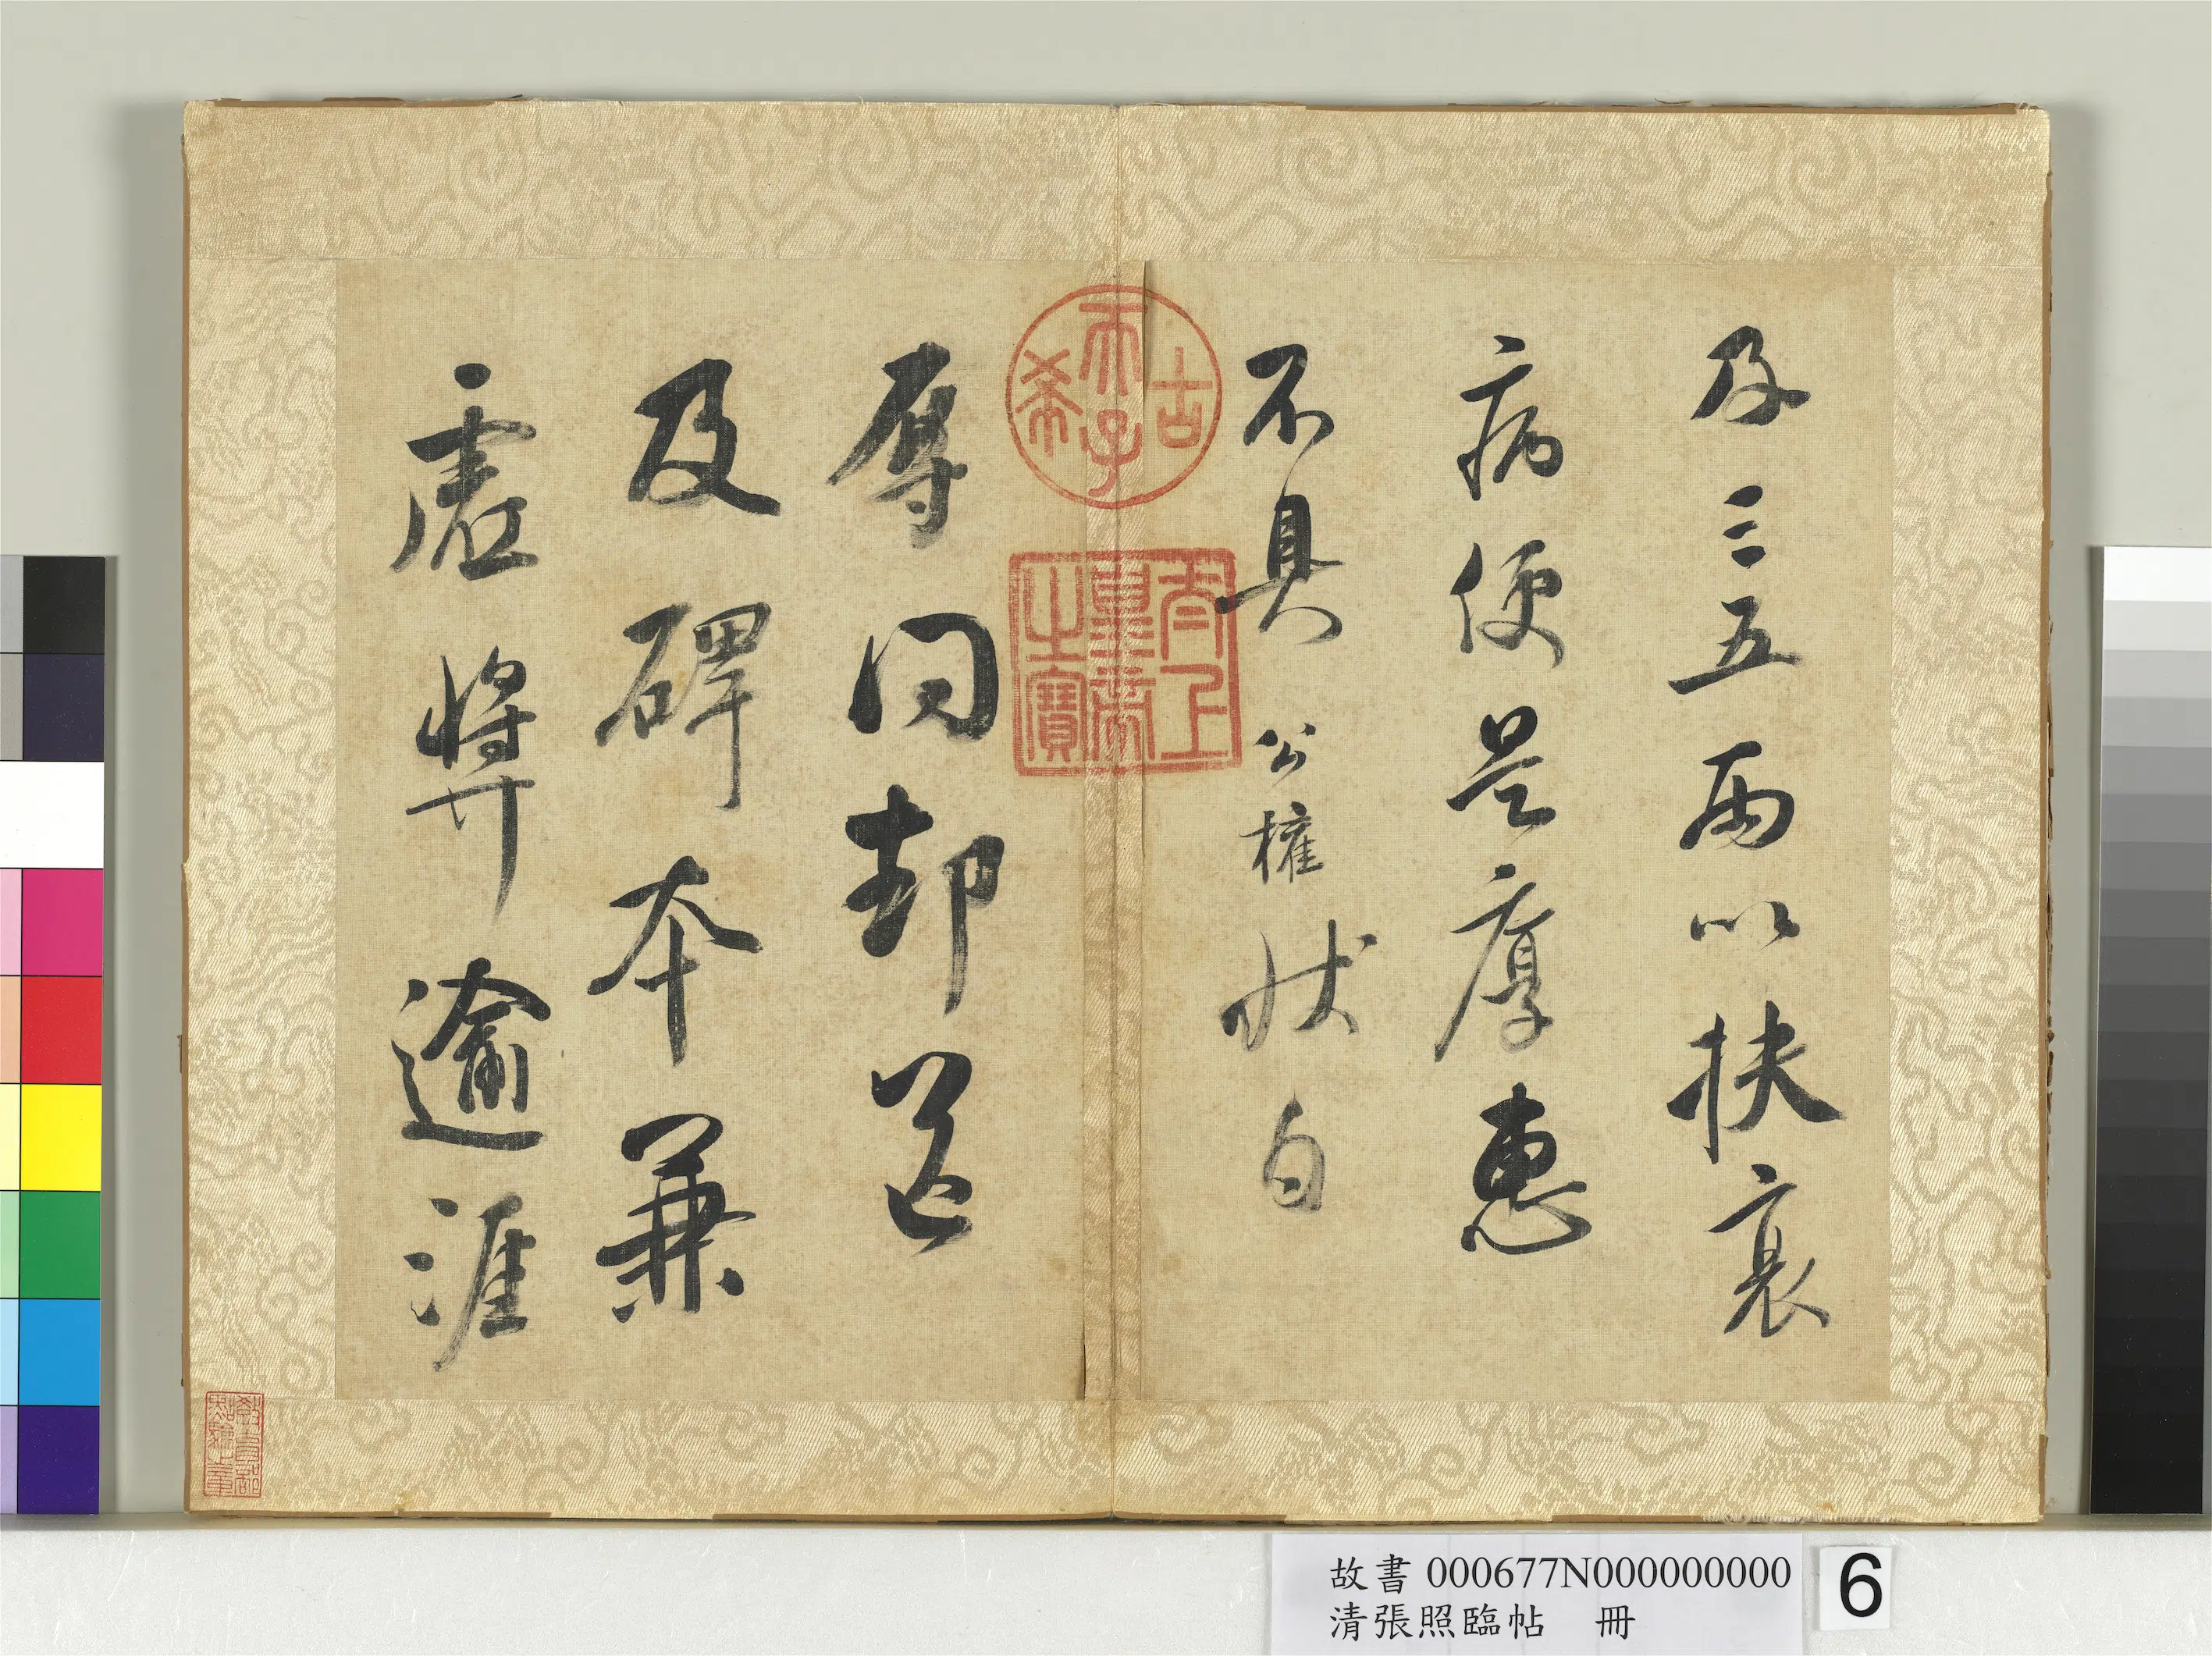 及三五兩以扶衰
病便是厚惠
不具公權狀白
辱問卻送
及碑本兼
虛獎逾涯
古希天子
太上皇帝之寶
故書 000677N000000000
清張照臨帖 冊
6